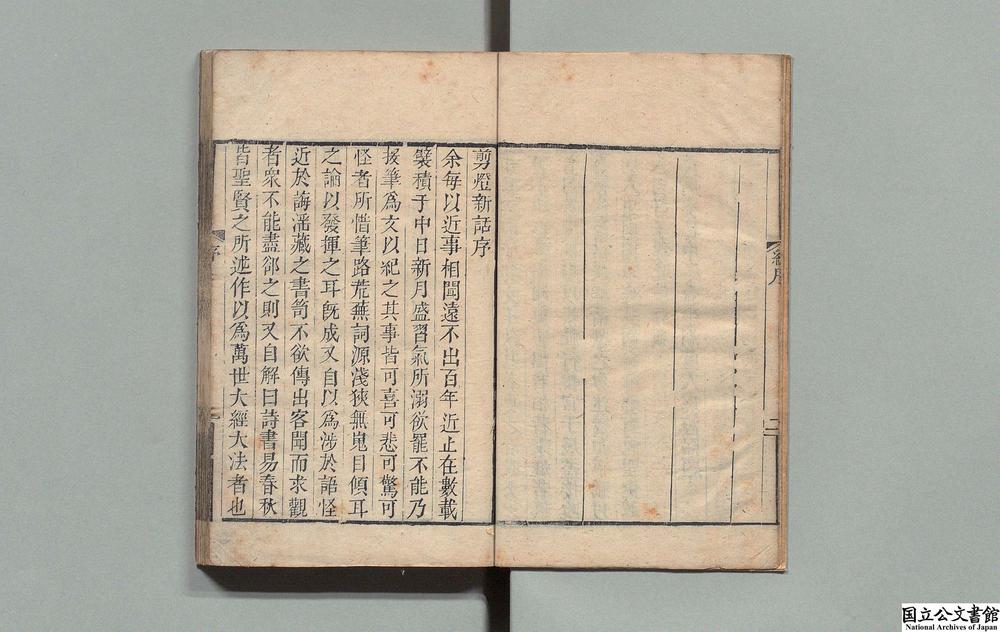 剪燈新話序
余每以近事相聞遠不出百年近止在數載
襞積于中日新月盛習氣所溺欲罷不能乃
援筆爲文以紀之其事皆可喜可悲可驚可
怪者所惜筆路荒蕪詞源淺狹無嵬目傾耳
之論以發揮之耳旣成又自以爲涉於語怪
近於誨淫藏之書笥不欲傳出客聞而求觀
者衆不能盡郤之則又自解曰詩書易春秋
皆聖賢之所述作以爲萬世大經大法者也
序
一
二
国立公文書館
National Archives of Japan